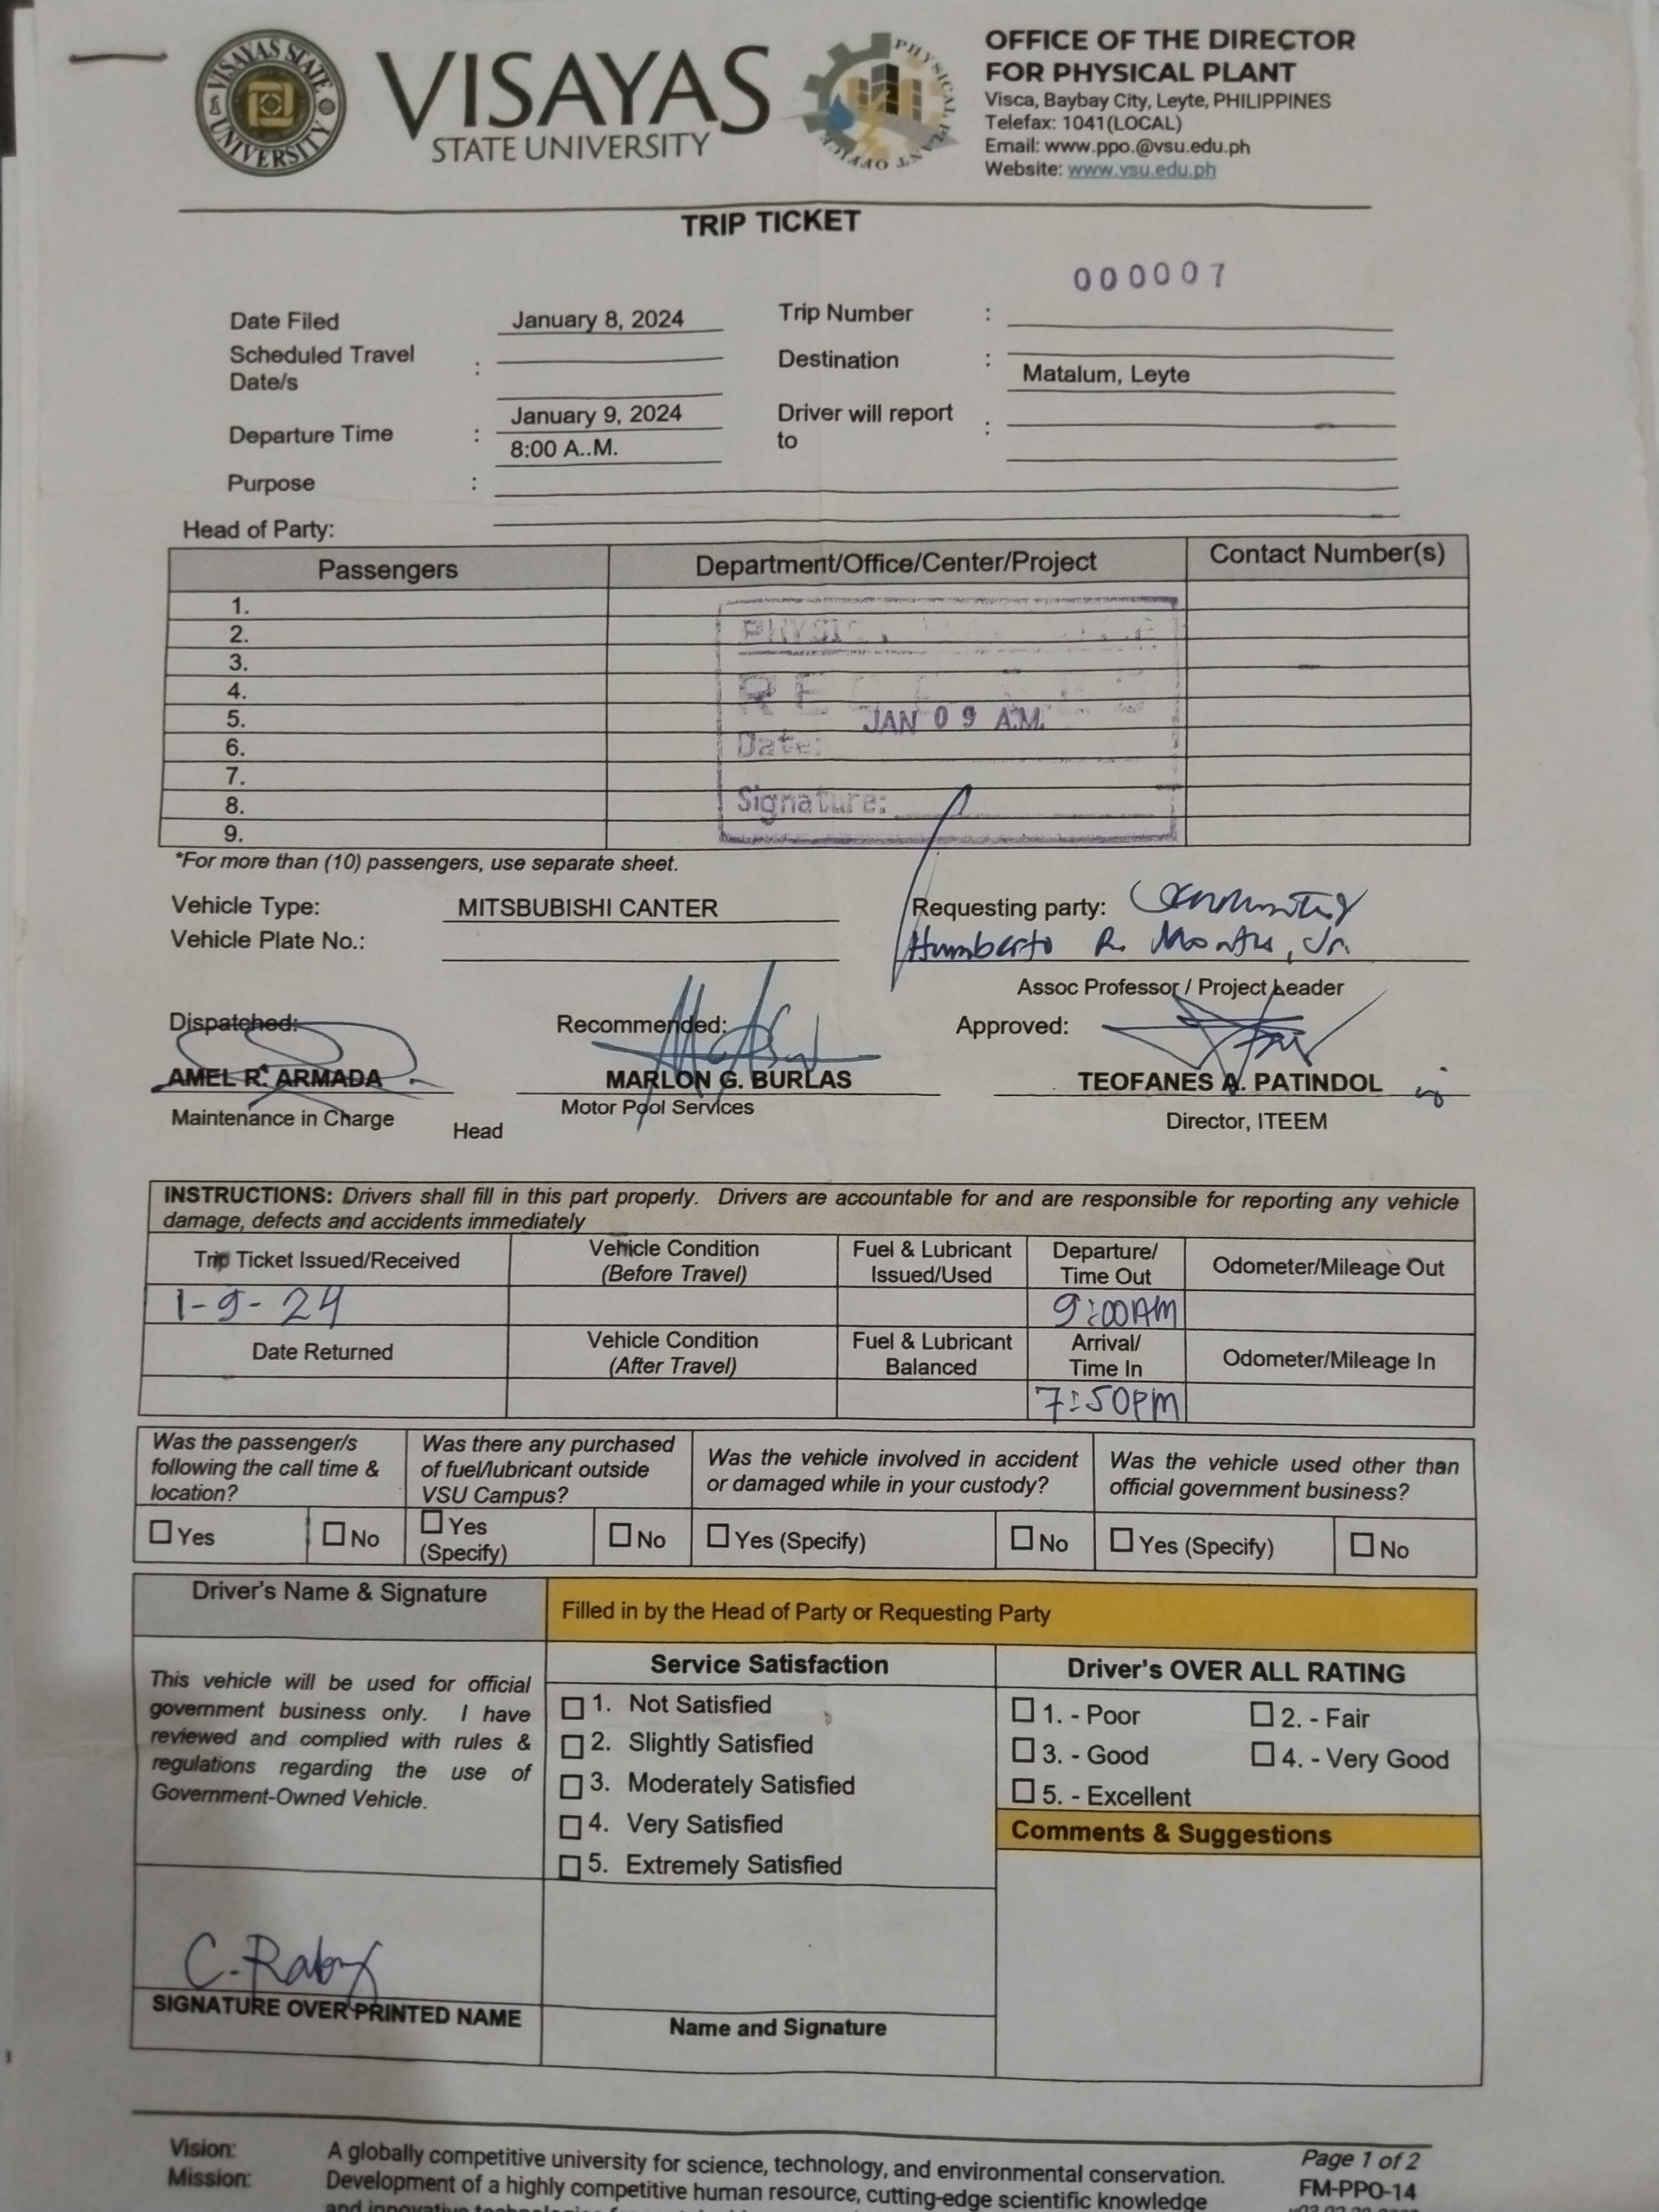 VISAYAS STATE UNIVERSITY
VISAYAS
STATE UNIVERSITY
PHYSICAL PLANT OFFICE
OFFICE OF THE DIRECTOR
FOR PHYSICAL PLANT
Visca, Baybay City, Leyte, PHILIPPINES
Telefax: 1041(LOCAL)
Email: www.ppo.@vsu.edu.ph
Website: www.vsu.edu.ph
TRIP TICKET
000007
Date Filed January 8, 2024 Trip Number :
Scheduled Travel Date/s : Destination : Matalum, Leyte
Departure Time : January 9, 2024 8:00 A..M. Driver will report to :
Purpose :
Head of Party:
Passengers Department/Office/Center/Project Contact Number(s)
1.
2.
3.
4.
5.
6.
7.
8.
9.
JAN 09 A.M.
Date:
Signature:
*For more than (10) passengers, use separate sheet.
Vehicle Type: MITSBUBISHI CANTER Requesting party:
Vehicle Plate No.: Humberto R. Montes, Jr.
Assoc Professor / Project Leader
Dispatched: Recommended: Approved:
AMEL R. ARMADA MARLON G. BURLAS TEOFANES A. PATINDOL
Maintenance in Charge Head Motor Pool Services Director, ITEEM
INSTRUCTIONS: Drivers shall fill in this part properly. Drivers are accountable for and are responsible for reporting any vehicle
damage, defects and accidents immediately
Trip Ticket Issued/Received Vehicle Condition (Before Travel) Fuel & Lubricant Issued/Used Departure/ Time Out Odometer/Mileage Out
1-9-24 9:00AM
Date Returned Vehicle Condition (After Travel) Fuel & Lubricant Balanced Arrival/ Time In Odometer/Mileage In
7:50pm
Was the passenger/s following the call time & location? Was there any purchased of fuel/lubricant outside VSU Campus? Was the vehicle involved in accident or damaged while in your custody? Was the vehicle used other than official government business?
Yes No Yes (Specify) No Yes (Specify) No Yes (Specify) No
Driver's Name & Signature Filled in by the Head of Party or Requesting Party
Service Satisfaction Driver's OVER ALL RATING
This vehicle will be used for official
government business only. I have
reviewed and complied with rules &
regulations regarding the use of
Government-Owned Vehicle.
1. Not Satisfied
2. Slightly Satisfied
3. Moderately Satisfied
4. Very Satisfied
5. Extremely Satisfied
1. - Poor 2. - Fair
3. - Good 4. - Very Good
5. - Excellent
Comments & Suggestions
SIGNATURE OVER PRINTED NAME Name and Signature
Vision: A globally competitive university for science, technology, and environmental conservation.
Mission: Development of a highly competitive human resource, cutting-edge scientific knowledge
Page 1 of 2
FM-PPO-14